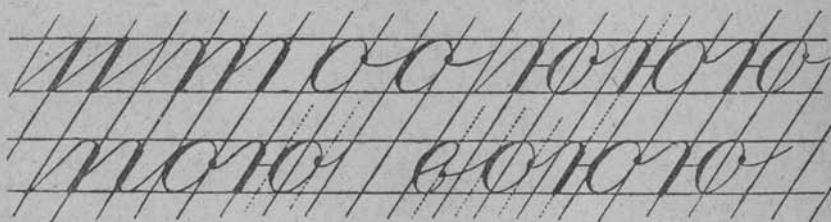 и т о о ю ю ю
пою воюю